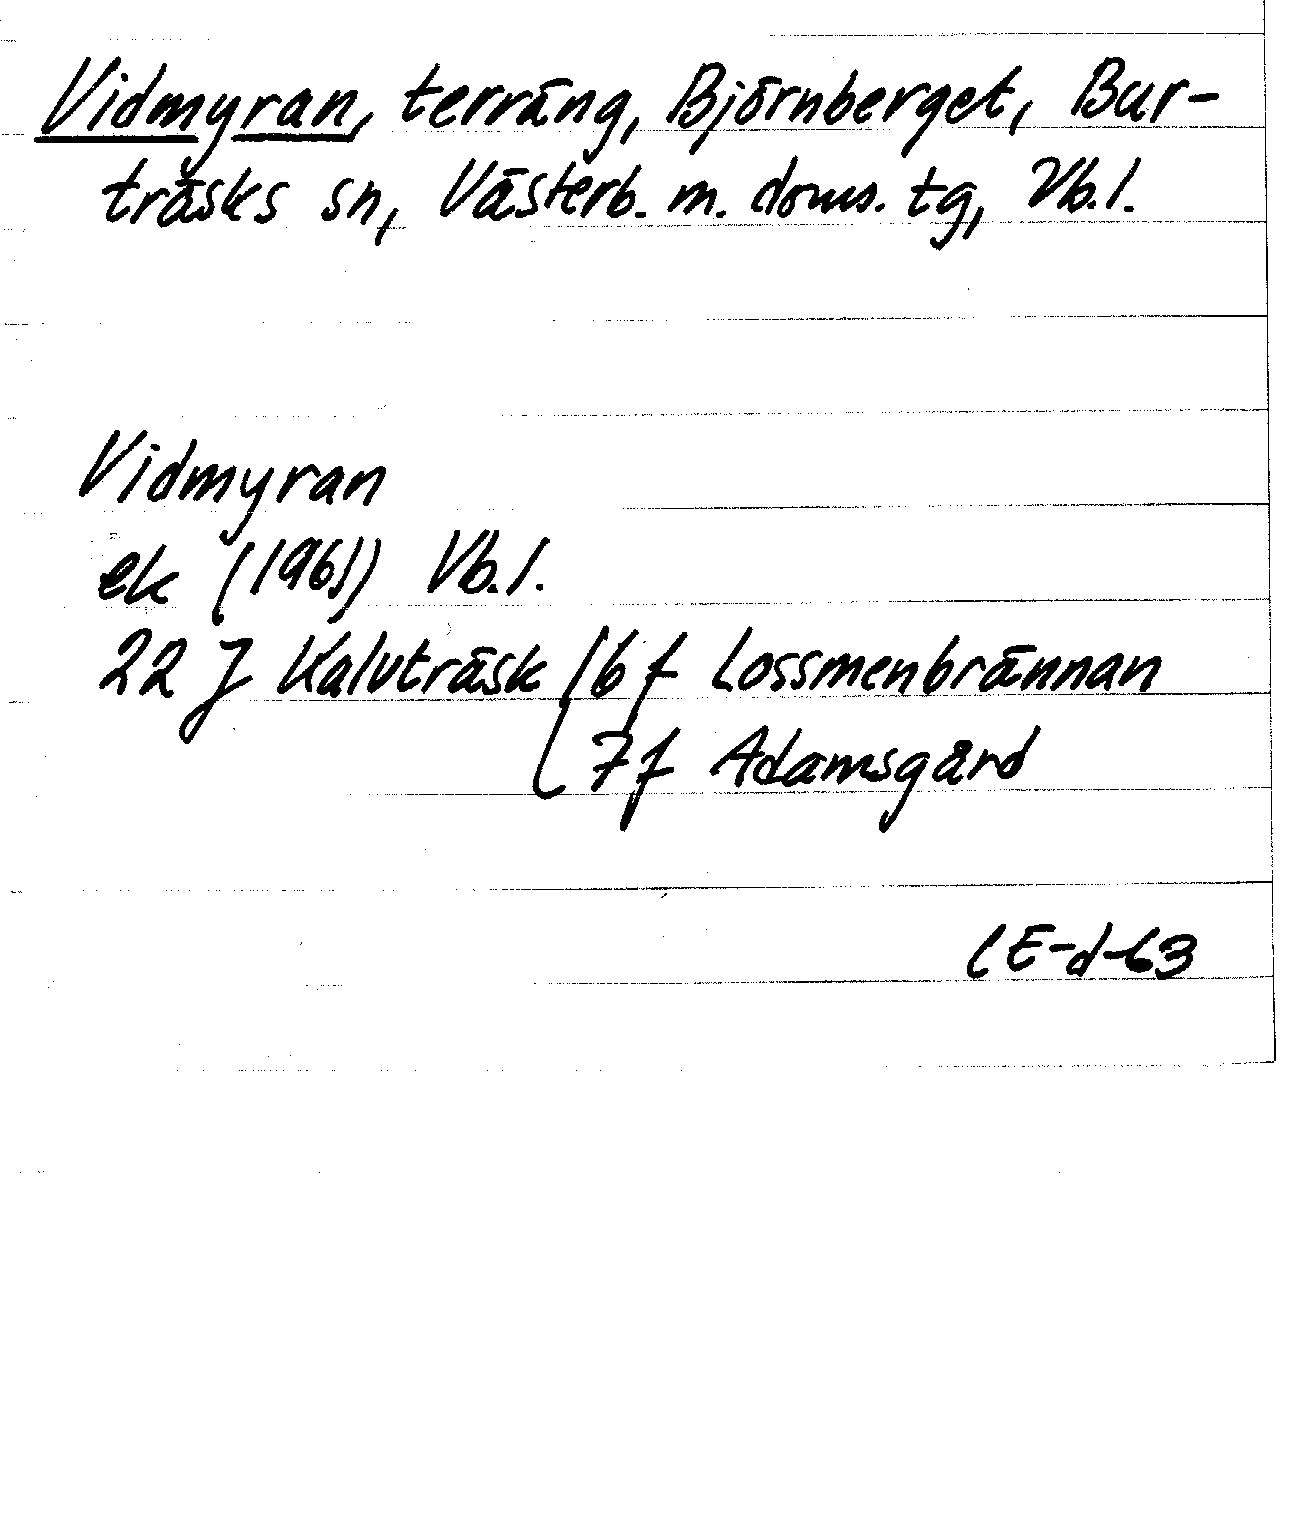 Vidmyran, terräng, Björnberget, Bur-
träsks sn, Västerb. m. doms. tg, Vb. l.
Vidmyran
ek (1961) Vb. l.
22 J Kalvträsk / 6 f Lossmenbrännan
7 f Adamsgård
CE-d-63